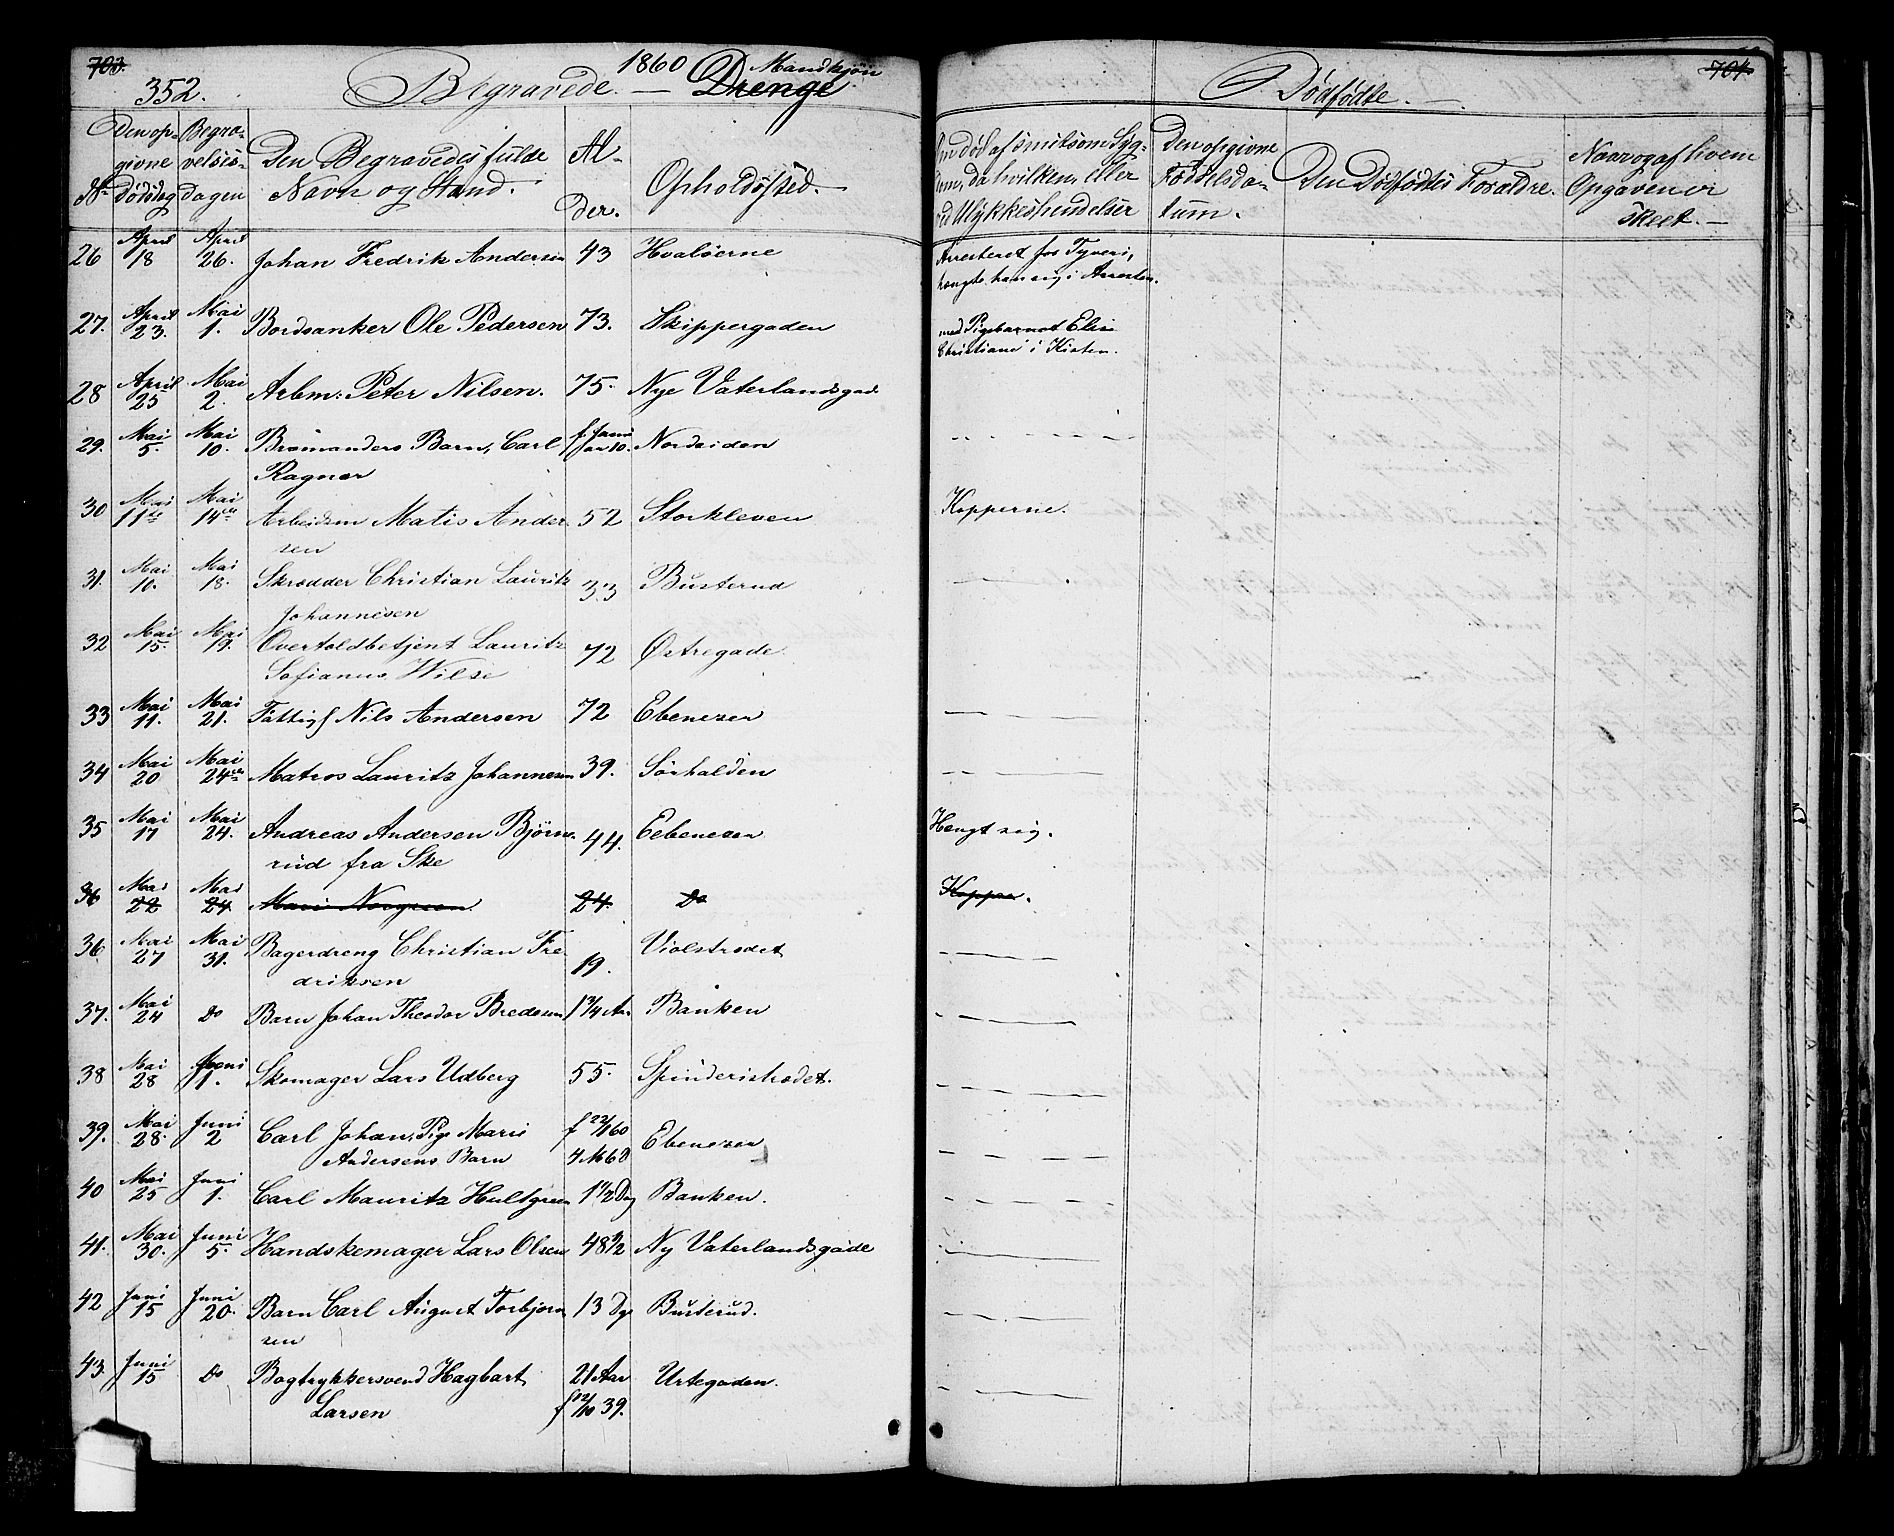 703. 1860 Mandkjøn
352. Begravede. — Drenge.
Den opgivne Dødsdag Begravelsesdagen
No Den Begravedes fulde Navn og Stand. Alder. Opholdssted.
26 April 18 April 26. Johan Fredrik Andersen 43 Hvaløerne
27. April 23. Mai 1. Bordsanker Ole Pedersen 73. Skippergaden
28 April 25 Mai 2. Arbm: Peter Nilsen. 75. Nye Vaterlandsgad
29. Mai 5. Mai 10. Barn, Carl Nordsiden
Ragnar
30 Mai 11te Mai 14de Arbeidsm Matis Ander 52 Storkleven
sen
31. Mai 10. Mai 18. Skrædder Christian Lauritz 33 Busterud
Johannesen
32 Mai 15. Mai 19. Overtoldbetjent Lauritz 72 Østregade
Sofianus Wilse
33 Mai 11. Mai 21. Fattigl Nils Andersen 72 Ebenezer
34 Mai 20 Mai 24de Matros Lauritz Johannesen 39. Sørhalden
35 Mai 17 Mai 24. Andreas Andersen Bjørn 44. Eebenezer
rud fra Ske
36 Mai 22 Mai 24. Marie Norgreen. 24. Do
36 Mai 27 Mai 31. Bagerdreng Christian Fre 19. Violstrædet
driksen
37. Mai 24 Do Barn Johan Theodor Bredesen 1 3/4 Aar Banken
38 Mai 28 Juni 1. Skomager Lars Udberg 55. Spinderistrædet.
39. Mai 28. Juni 2 Carl Johan, Pige Marie f 22/1 60 Ebenezer
Andersens Barn 4 M 6 D
40 Mai 25 Juni 1. Carl Mauritz Hultgren 1 1/2 Dag Banken.
41. Mai 30. Juni 5. Handskemager Lars Olsen 48 1/2 Ny Vaterlandsgade
42 Juni 15 Juni 20. Barn Carl August Torbjørn 13 Dge Busterud.
sen
43. Juni 15 Do Bogtrykkersvend Hagbart 21 Aar Urtegaden.
Larsen f 12/10 39.
704
Dødfødte. —
Om død af smitsom Syg-
dom, da hvilken, eller
ved Ulykkeshendelser
Den opgivne
Fødselsda-
tum.
Den Dødfødtes Forældre.
Naar og af hvem
Opgaven er
skeet. —
Arresteret for Tyveri,
hængte han sig i Arresten.
med Pigebarnet Elise
Christiane i Kisten.
Kopperne.
Hengt sig.
Kopper.